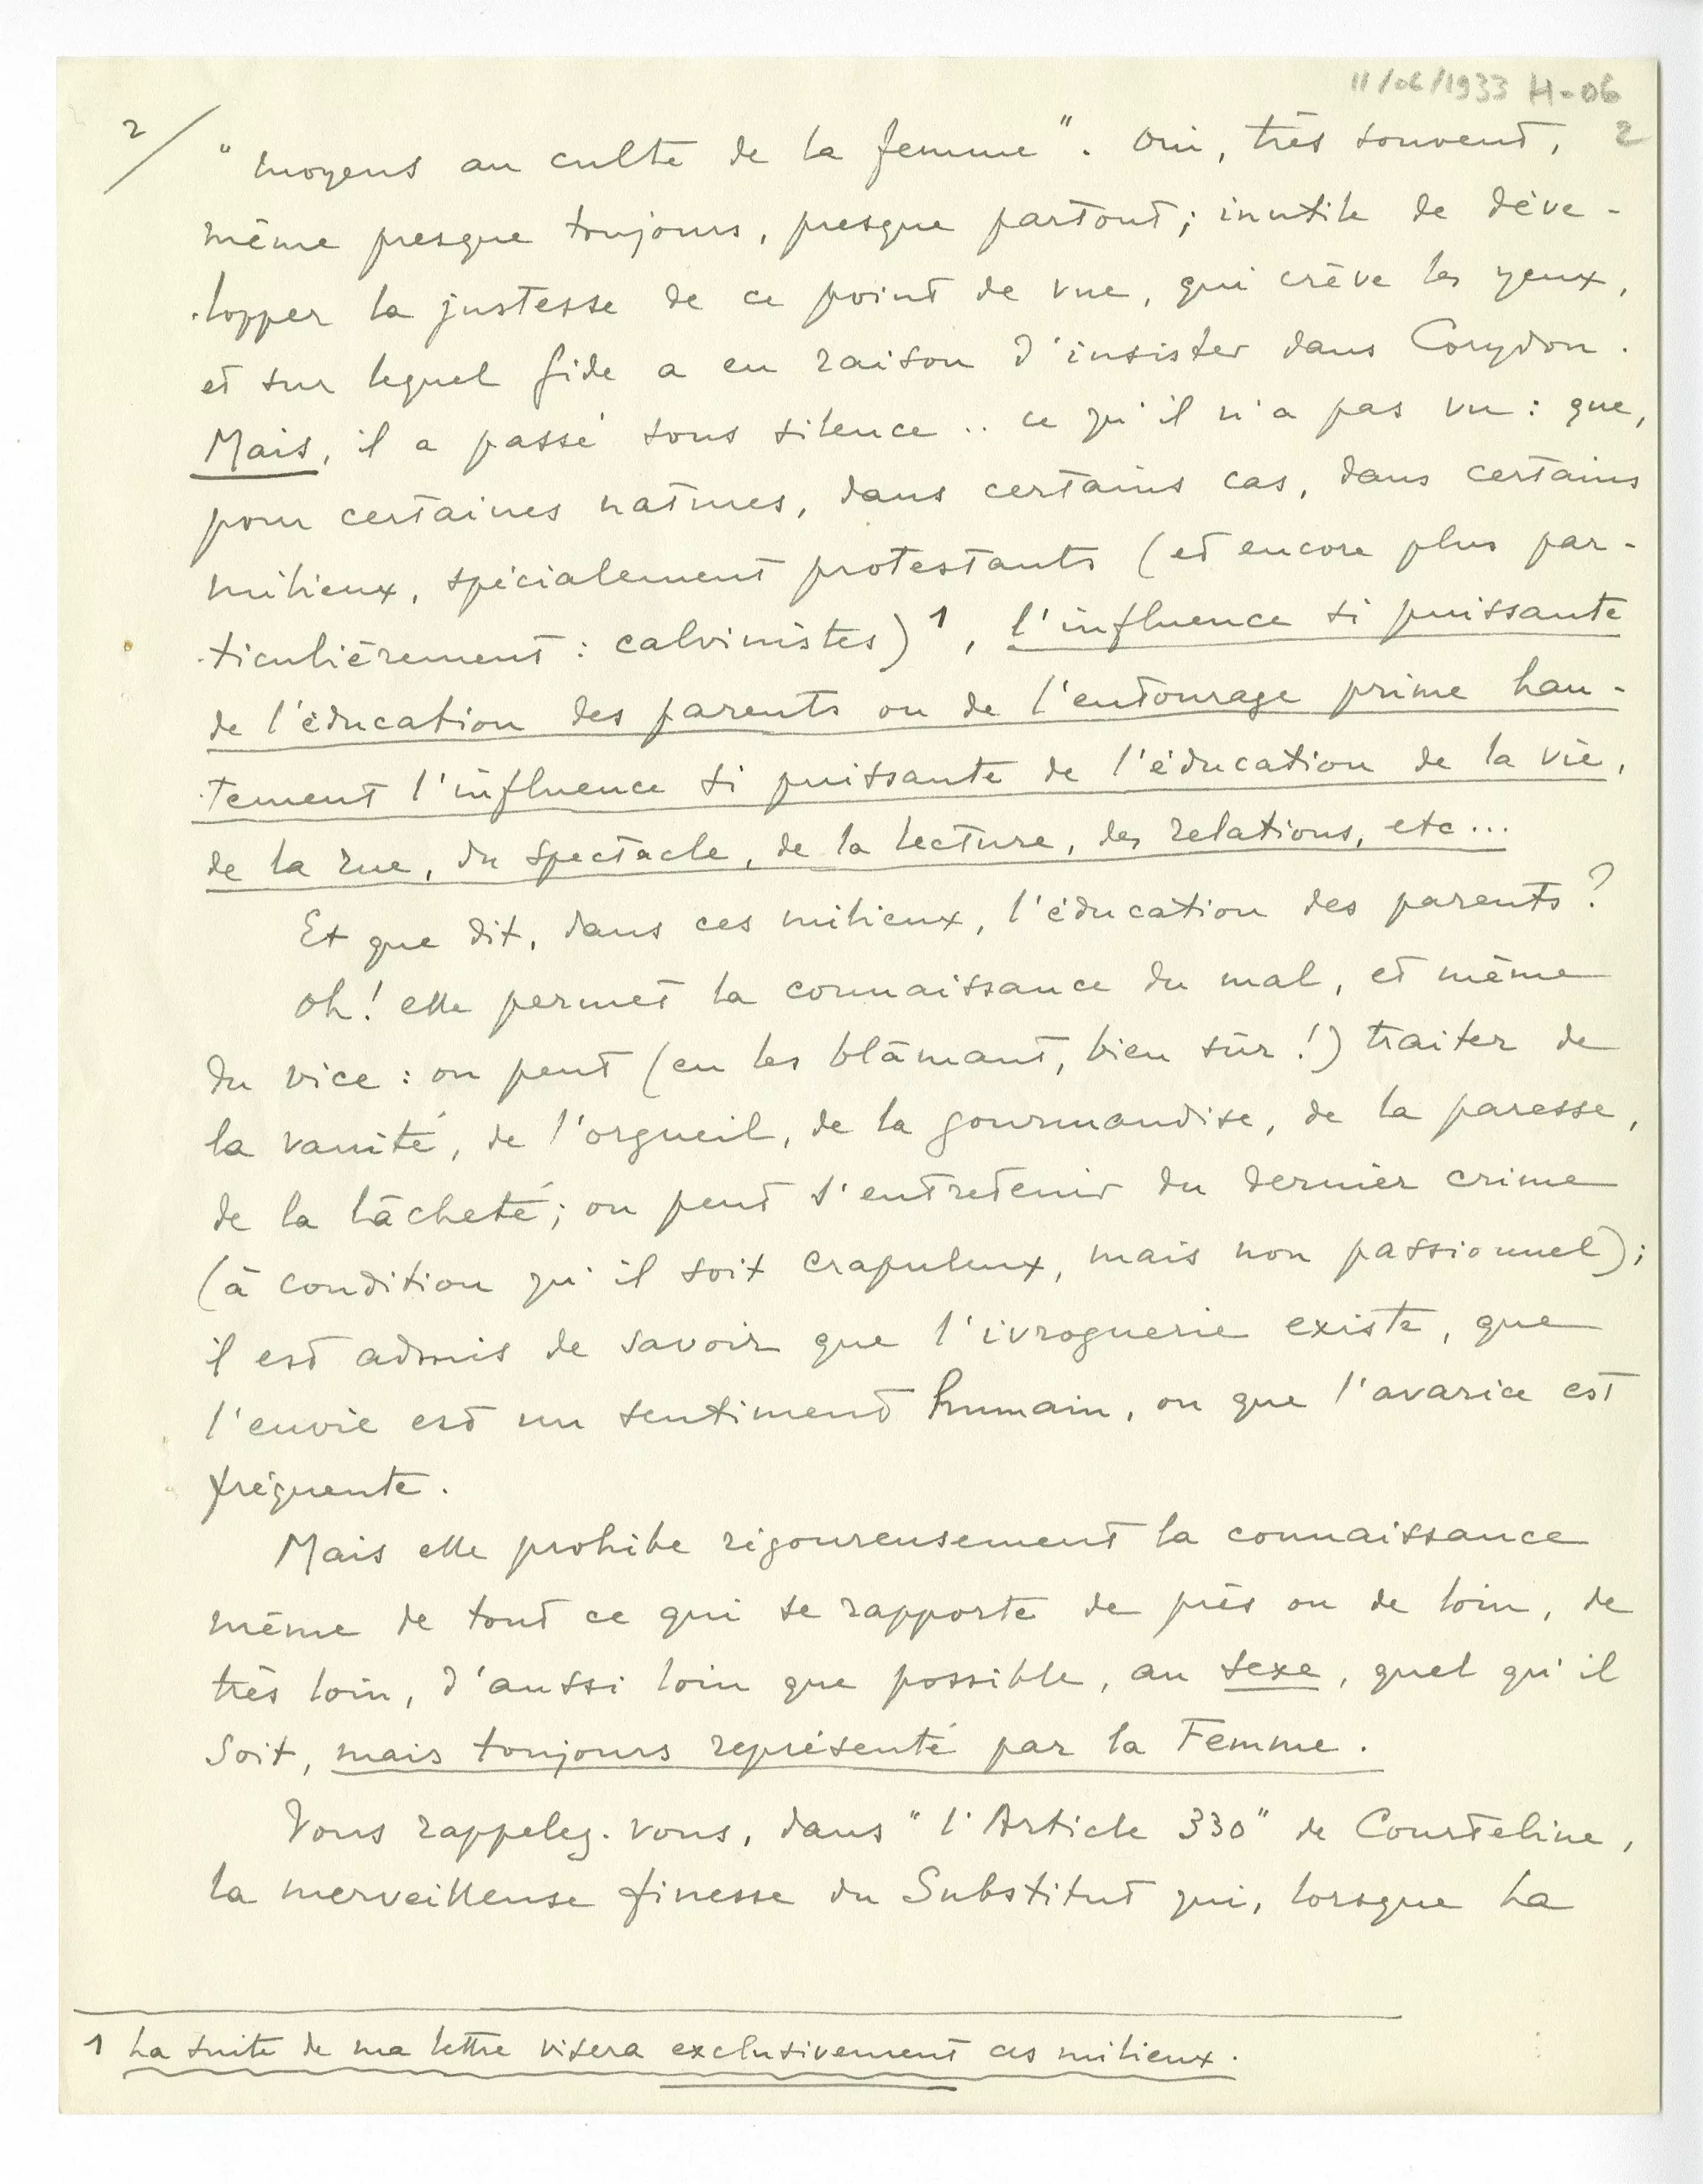 11/06/1933 H-06
2/
2
"moyens au culte de la femme". Oui, très souvent,
même presque toujours, presque partout; inutile de déve-
-lopper la justesse de ce point de vue, qui crève les yeux,
et sur lequel Gide a eu raison d'insister dans Corydon.
Mais, il a passé sous silence .. ce qu'il n'a pas vu: que,
pour certaines natures, dans certains cas, dans certains
milieux, spécialement protestants (et encore plus par-
-ticulièrement: calvinistes)1, l'influence si puissante
de l'éducation des parents ou de l'entourage prime hau-
-tement l'influence si puissante de l'éducation de la vie,
de la rue, du spectacle, de la lecture, des relations, etc...
Et que dit, dans ces milieux, l'éducation des parents?
Oh! elle permet la connaissance du mal, et même
du vice: on peut (en les blâmant, bien sûr!) traiter de
la vanité, de l'orgueil, de la gourmandise, de la paresse,
de la lâcheté; on peut s'entretenir du dernier crime
(à condition qu'il soit crapuleux, mais non passionnel);
il est admis de savoir que l'ivrognerie existe, que
l'envie est un sentiment humain, ou que l'avarice est
fréquente.
Mais elle prohibe rigoureusement la connaissance
même de tout ce qui se rapporte de près ou de loin, de
très loin, d'aussi loin que possible, au sexe, quel qu'il
soit, mais toujours représenté par la Femme.
Vous rappelez-vous, dans "l'Article 330" de Courteline,
la merveilleuse finesse du Substitut qui, lorsque La
1 La suite de ma lettre visera exclusivement ces milieux.